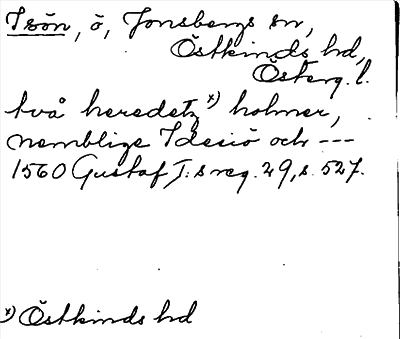 Isön, ö, Jonsbergs sn,
Östkinds hd,
Österg. l.
två heredetz x) holmer,
nemblige Idesiö och ---
1560 Gustaf I:s reg. 29, s. 527.
x) Östkinds hd